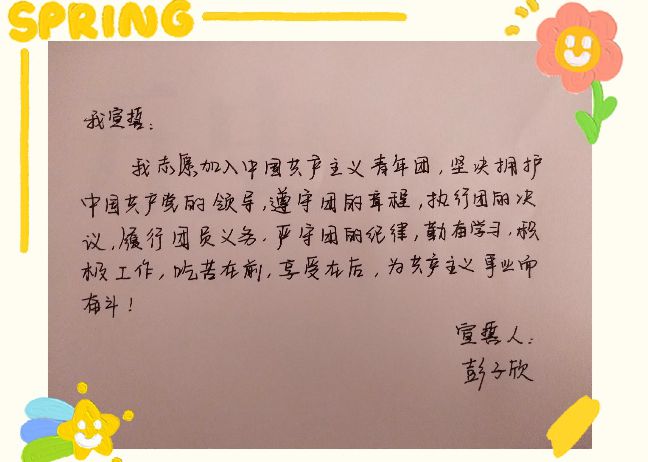 SPRING
我宣誓：
我志愿加入中国共产主义青年团，坚决拥护
中国共产党的领导，遵守团的章程，执行团的决
议，履行团员义务，严守团的纪律，勤奋学习，积
极工作，吃苦在前，享受在后，为共产主义事业而
奋斗！
宣誓人：
彭子欣